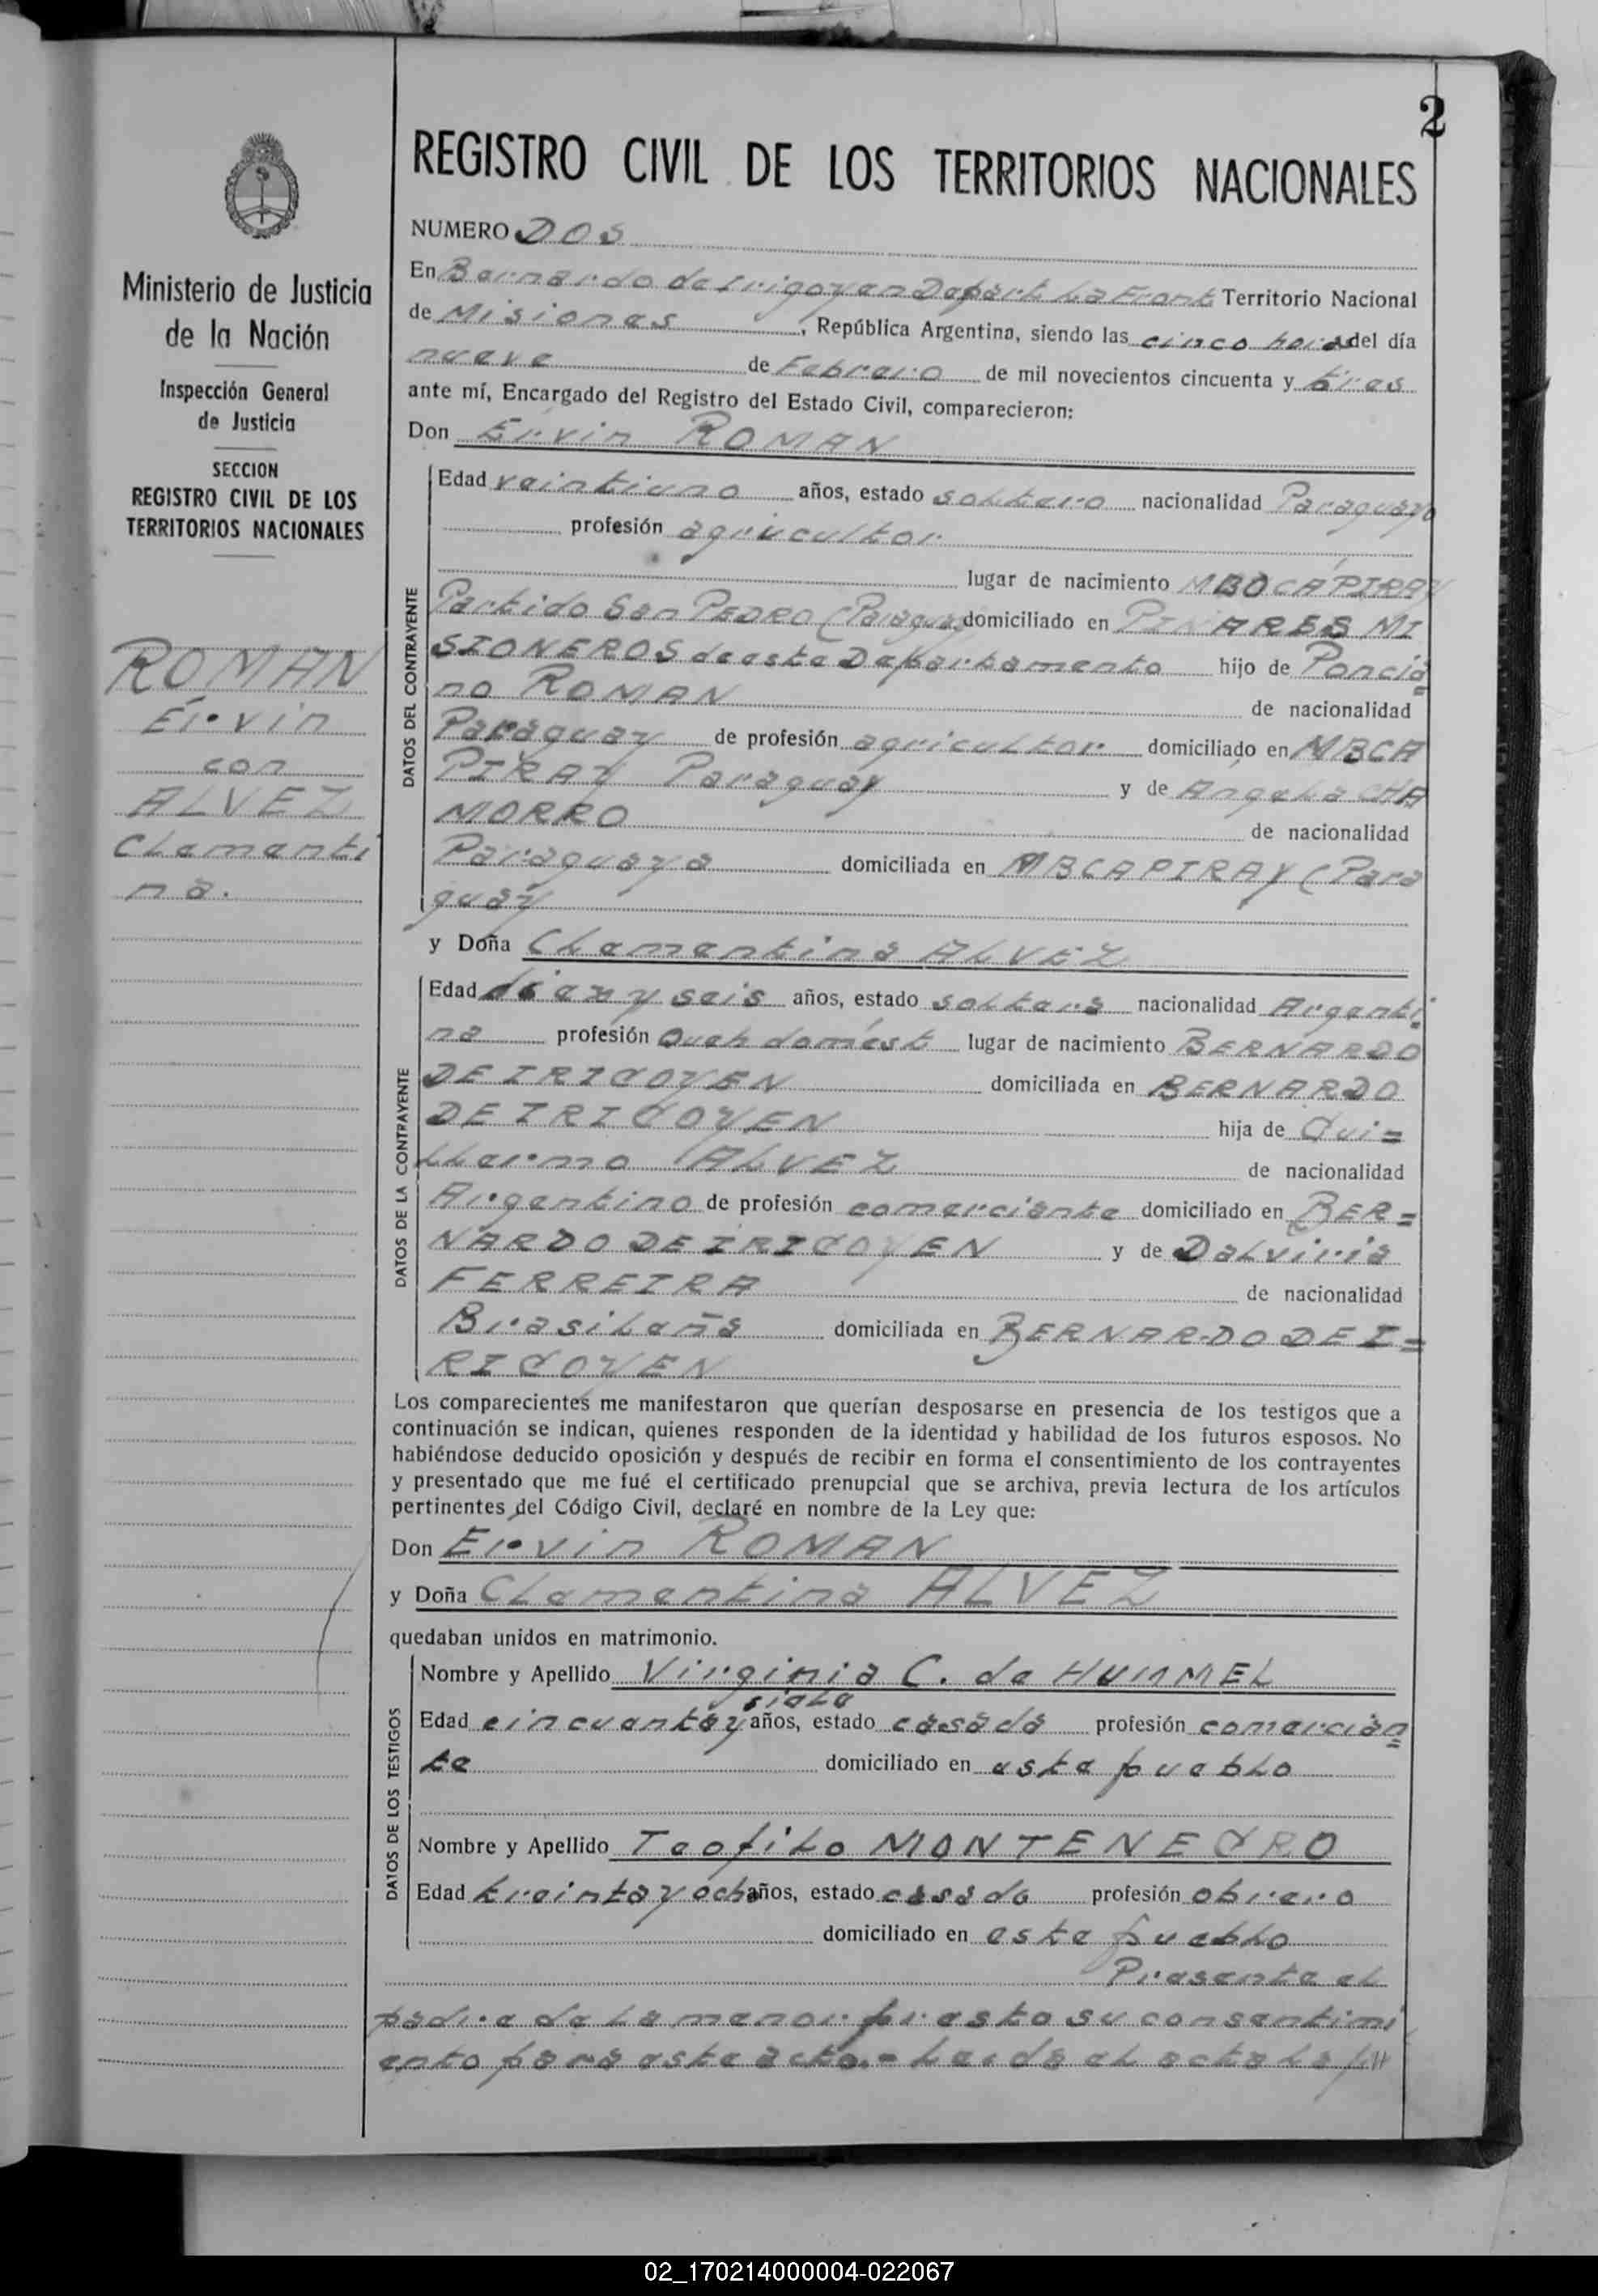 2
REGISTRO CIVIL DE LOS TERRITORIOS NACIONALES
NUMERO DOS
En Bernardo de Irigoyen Depart. La Front. Territorio Nacional
de Misiones, República Argentina, siendo las cinco horas del día
nueve de Febrero de mil novecientos cincuenta y tres
ante mí, Encargado del Registro del Estado Civil, comparecieron:
Don Ervin ROMAN
DATOS DEL CONTRAYENTE
Edad veintiuno años, estado soltero nacionalidad Paraguayo
profesión agricultor
lugar de nacimiento MBOCAPIRAY
Partido San PEDRO (Paraguay domiciliado en PINARES MI
SIONEROS de este Departamento hijo de Poncia=
no ROMAN de nacionalidad
Paraguay de profesión agricultor domiciliado en MBCA
PIRAY Paraguay y de Angela CHA
MORRO de nacionalidad
Paraguaya domiciliada en MBCAPIRAY (Para
guay
y Doña Clementina ALVEZ
DATOS DE LA CONTRAYENTE
Edad diez y seis años, estado soltera nacionalidad Argenti=
na profesión Queh domést lugar de nacimiento BERNARDO
DE IRIGOYEN domiciliada en BERNARDO
DE IRIGOYEN hija de Gui=
llermo ALVEZ de nacionalidad
Argentino de profesión comerciante domiciliado en BER=
NARDO DE IRIGOYEN y de Dalviria
FERREIRA de nacionalidad
Brasileña domiciliada en BERNARDO DE I=
RIGOYEN
Los comparecientes me manifestaron que querían desposarse en presencia de los testigos que a
continuación se indican, quienes responden de la identidad y habilidad de los futuros esposos. No
habiéndose deducido oposición y después de recibir en forma el consentimiento de los contrayentes
y presentado que me fué el certificado prenupcial que se archiva, previa lectura de los artículos
pertinentes del Código Civil, declaré en nombre de la Ley que:
Don Ervin ROMAN
y Doña Clementina ALVEZ
quedaban unidos en matrimonio.
DATOS DE LOS TESTIGOS
Nombre y Apellido Virginia C. de HUMMEL
siete
Edad cincuenta y años, estado casada profesión comercian=
te domiciliado en este pueblo
Nombre y Apellido Teofilo MONTENEGRO
Edad treinta y ocho años, estado casado profesión obrero
domiciliado en este pueblo
Presente el
padre de la menor presto su consentimi
ento para este acto.- Leida el acta la
Ministerio de Justicia
de la Nación
Inspección General
de Justicia
SECCION
REGISTRO CIVIL DE LOS
TERRITORIOS NACIONALES
ROMAN
Ervin
con
ALVEZ
Clementi
na.
02_170214000004-022067